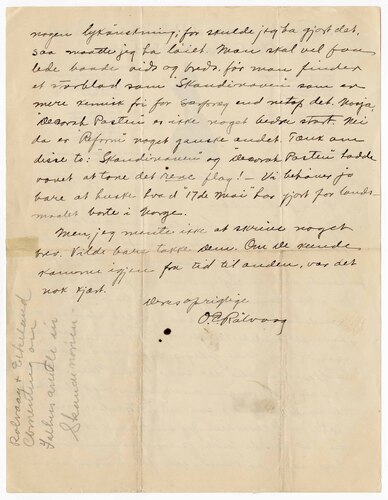 nogen lykönskning; for skulde jeg ha gjort det,
saa maatte jeg ha löiet. Man skal vel fan
lede baade vids og breds, för man finder
et vorblad som "Skandinaven" som er
mere kemisk fri for særpræg end netop det. Norja,
"Decorah Posten" er ikke noget bedre stort. Nei
da er "Reform" noget ganske andet. Tænk om
disse to: "Skandinaven" og "Decorah Posten" hadde
vovet at tone det rene flag! – Vi behöver jo
bare at huske hvad "17de Mai" har gjort for lands-
maalet borte i Norge.
Men, jeg mente ikke at skrive noget
brev. Vilde bare takke Dem. Om De kunde
komme igjen fra tid til anden, var det
nok kjært.
Deres oprigtige
O. E. Rölvaag
Rolvaag & Eikeland
Commenting on
article in
Skandinaven -